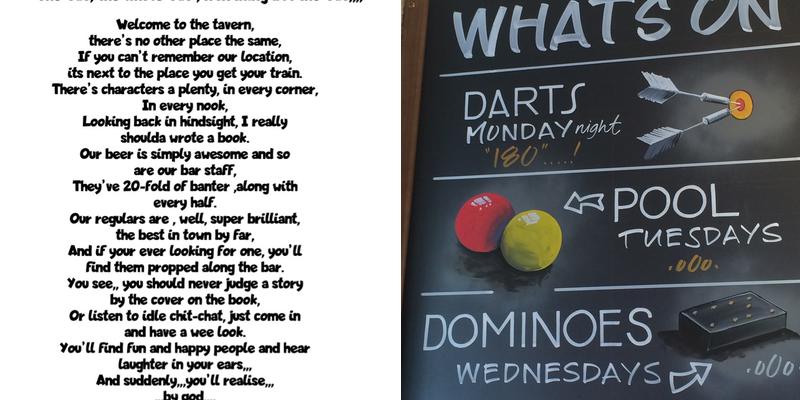 Welcome to the tavern,
there's no other place the same,
If you can't remember our location,
its next to the place you get your train.
There's characters a plenty, in every corner,
In every nook,
Looking back in hindsight, I really
shoulda wrote a book.
Our beer is simply awesome and so
are our bar staff,
They've 20-fold of banter ,along with
every half.
Our regulars are , well, super brilliant,
the best in town by far,
And if your ever looking for one, you'll
find them propped along the bar.
You see,, you should never judge a story
by the cover on the book,
Or listen to idle chit-chat, just come in
and have a wee look.
You'll find fun and happy people and hear
laughter in your ears,,,
And suddenly,,,you'll realise,,,
by god
WHATS ON
DARTS
MONDAY night
"180"....!
POOL
TUESDAYS
.oOo.
DOMINOES
WEDNESDAYS
.oOo.